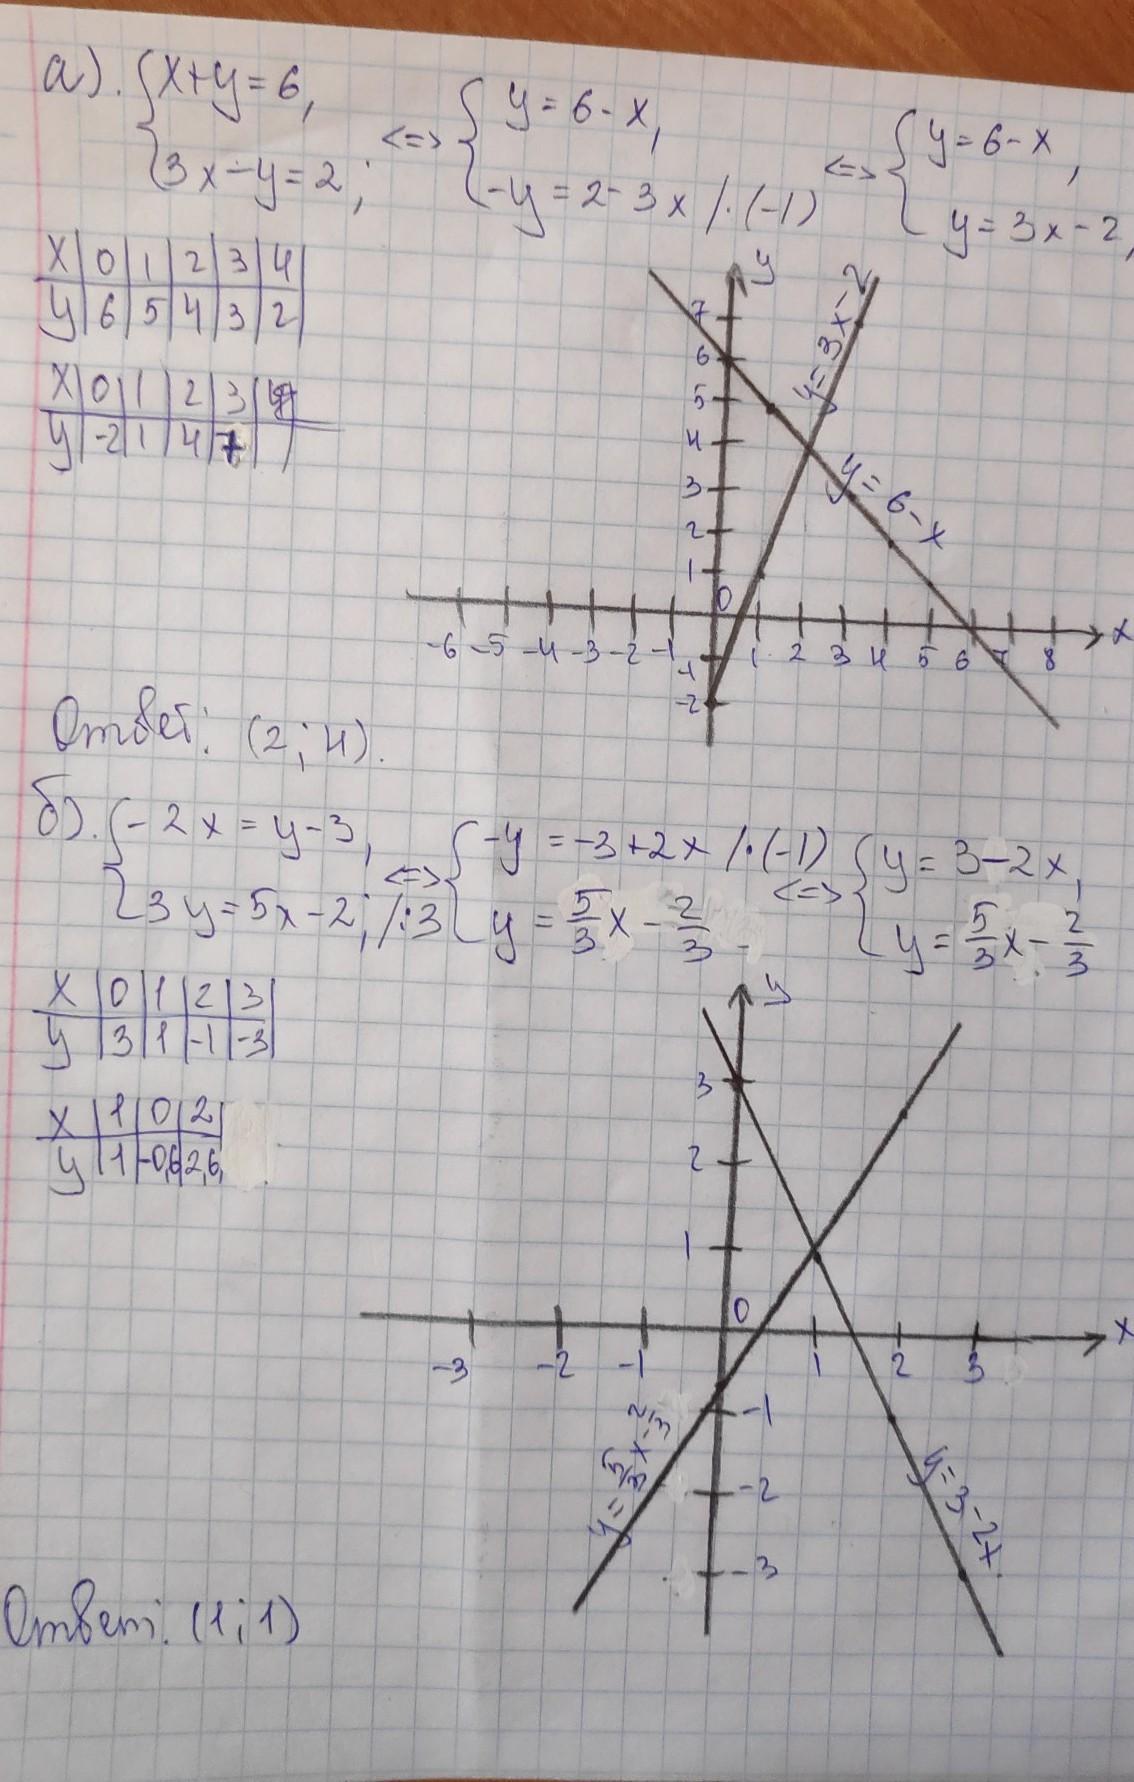 а). { x+y=6, <=> { y=6-x, <=> { y=6-x,
3x-y=2; -y=2-3x /·(-1) y=3x-2,
x | 0 | 1 | 2 | 3 | 4
y | 6 | 5 | 4 | 3 | 2
x | 0 | 1 | 2 | 3
y | -2 | 1 | 4 | 7
y
7
6
5
4
3
2
1
0
-6 -5 -4 -3 -2 -1 1 2 3 4 5 6 7 8 x
-1
-2
y=3x-2
y=6-x
Ответ: (2; 4).
б). { -2x=y-3, <=> { -y=-3+2x /·(-1) <=> { y=3-2x,
3y=5x-2; /:3 y=5/3x-2/3 y=5/3x-2/3
x | 0 | 1 | 2 | 3
y | 3 | 1 | -1 | -3
x | 1 | 0 | 2
y | 1 | -0,6 | 2,6
y
3
2
1
0
x
-3 -2 -1 1 2 3
-1
-2
-3
y=5/3x-2/3
y=3-2x
Ответ: (1; 1)